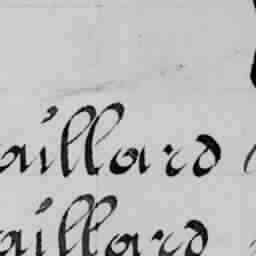 aillard
aillard